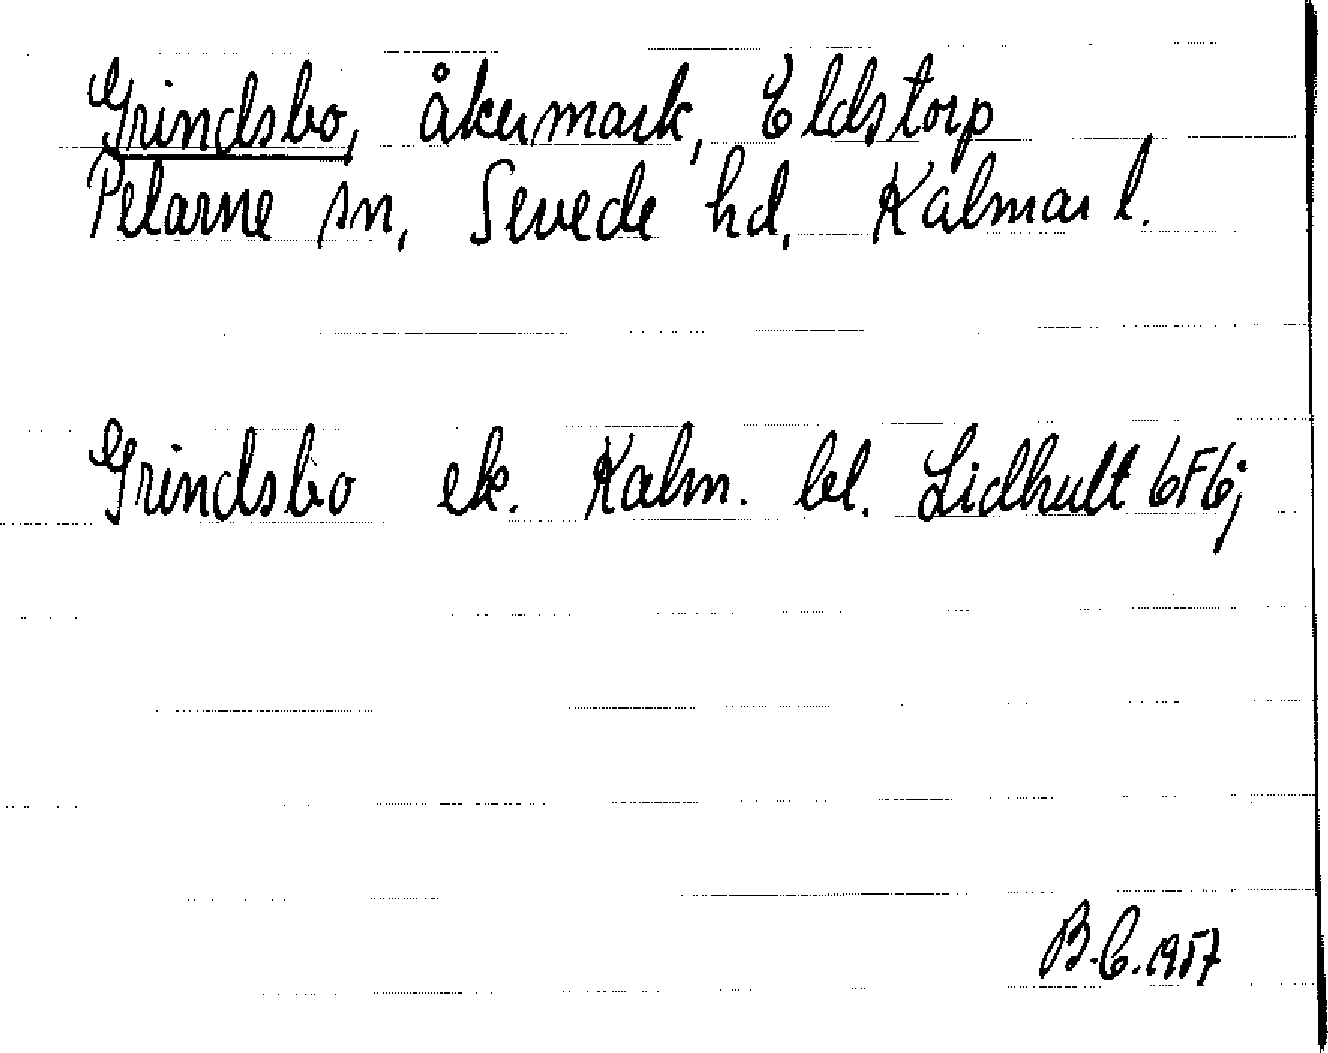 Grindsbo, åkermark, Eldstorp
Pelarne sn, Sevede hd, Kalmar l.
Grindsbo ek. Kalm. bl. Lidhult 6F6j
B.C. 1957